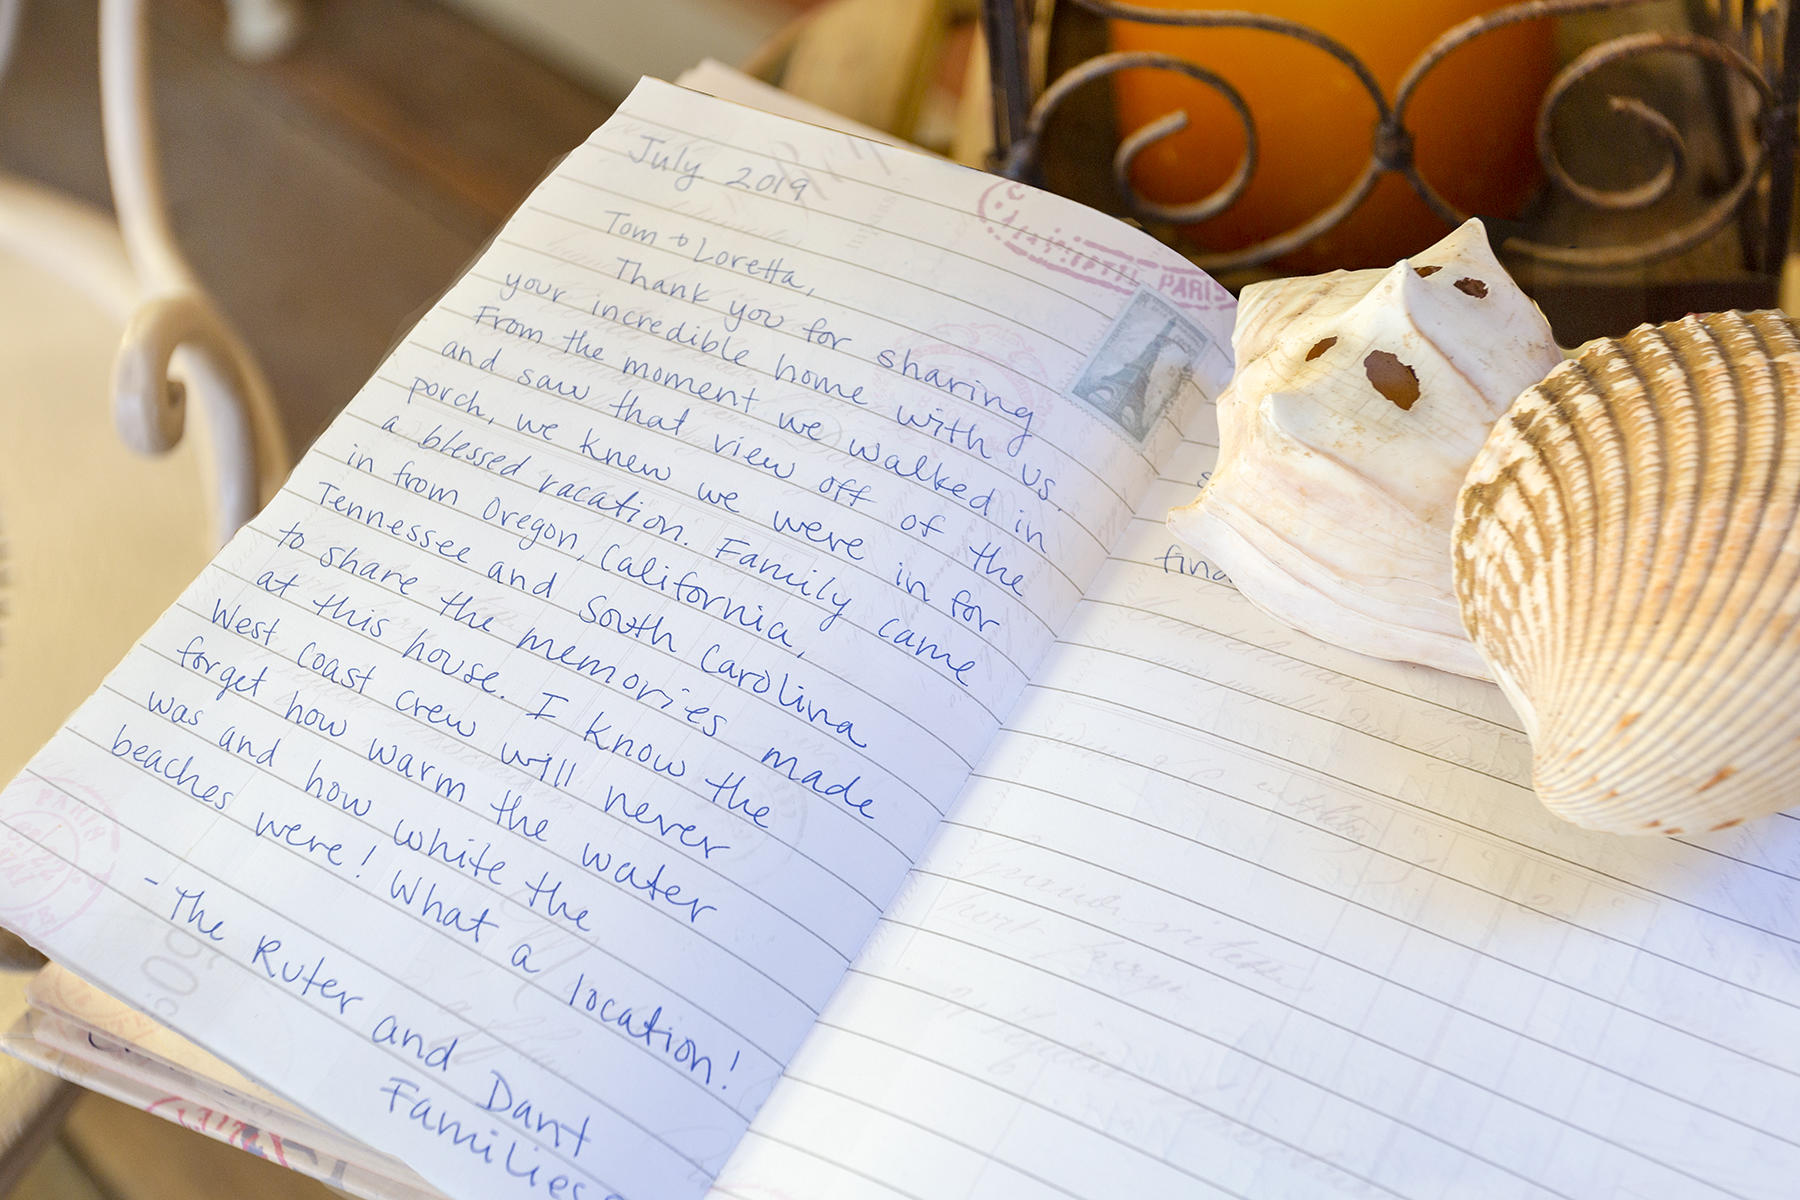 July 2019
Tom + Loretta,
Thank you for sharing
your incredible home with us.
From the moment we walked in
and saw that view off of the
porch, we knew we were in for
a blessed vacation. Family came
in from Oregon, California,
Tennessee and South Carolina
to share the memories made
at this house. I know the
West coast crew will never
forget how warm the water
was and how white the
beaches were! What a location!
- The Ruter and Dant
Families
PARIS
PARIS